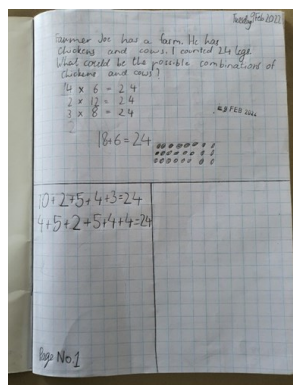 Tuesday Feb 2022
Farmer Joe has a farm. He has
chickens and cows. I counted 24 legs.
What could be the possible combinations of
chickens and cows?
4 x 6 = 24
2 x 12 = 24
3 x 8 = 24
FEB
18+6=24
10+2+5+4+3=24
4+5+2+5+4+4=24
Page No.1